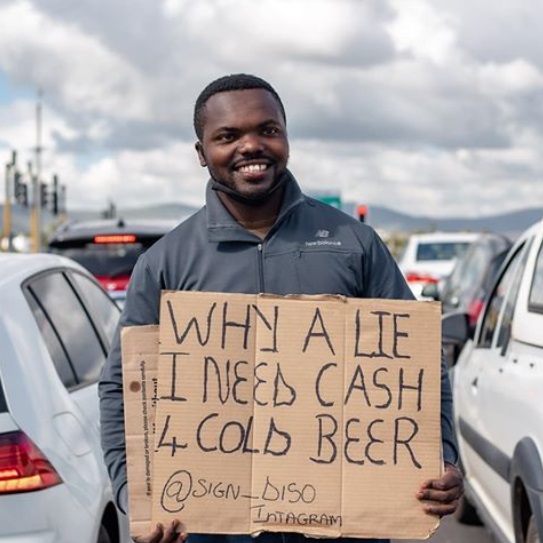 new balance
WHY A LIE
I NEED CASH
4 COLD BEER
@SIGN_DISO
INTAGRAM